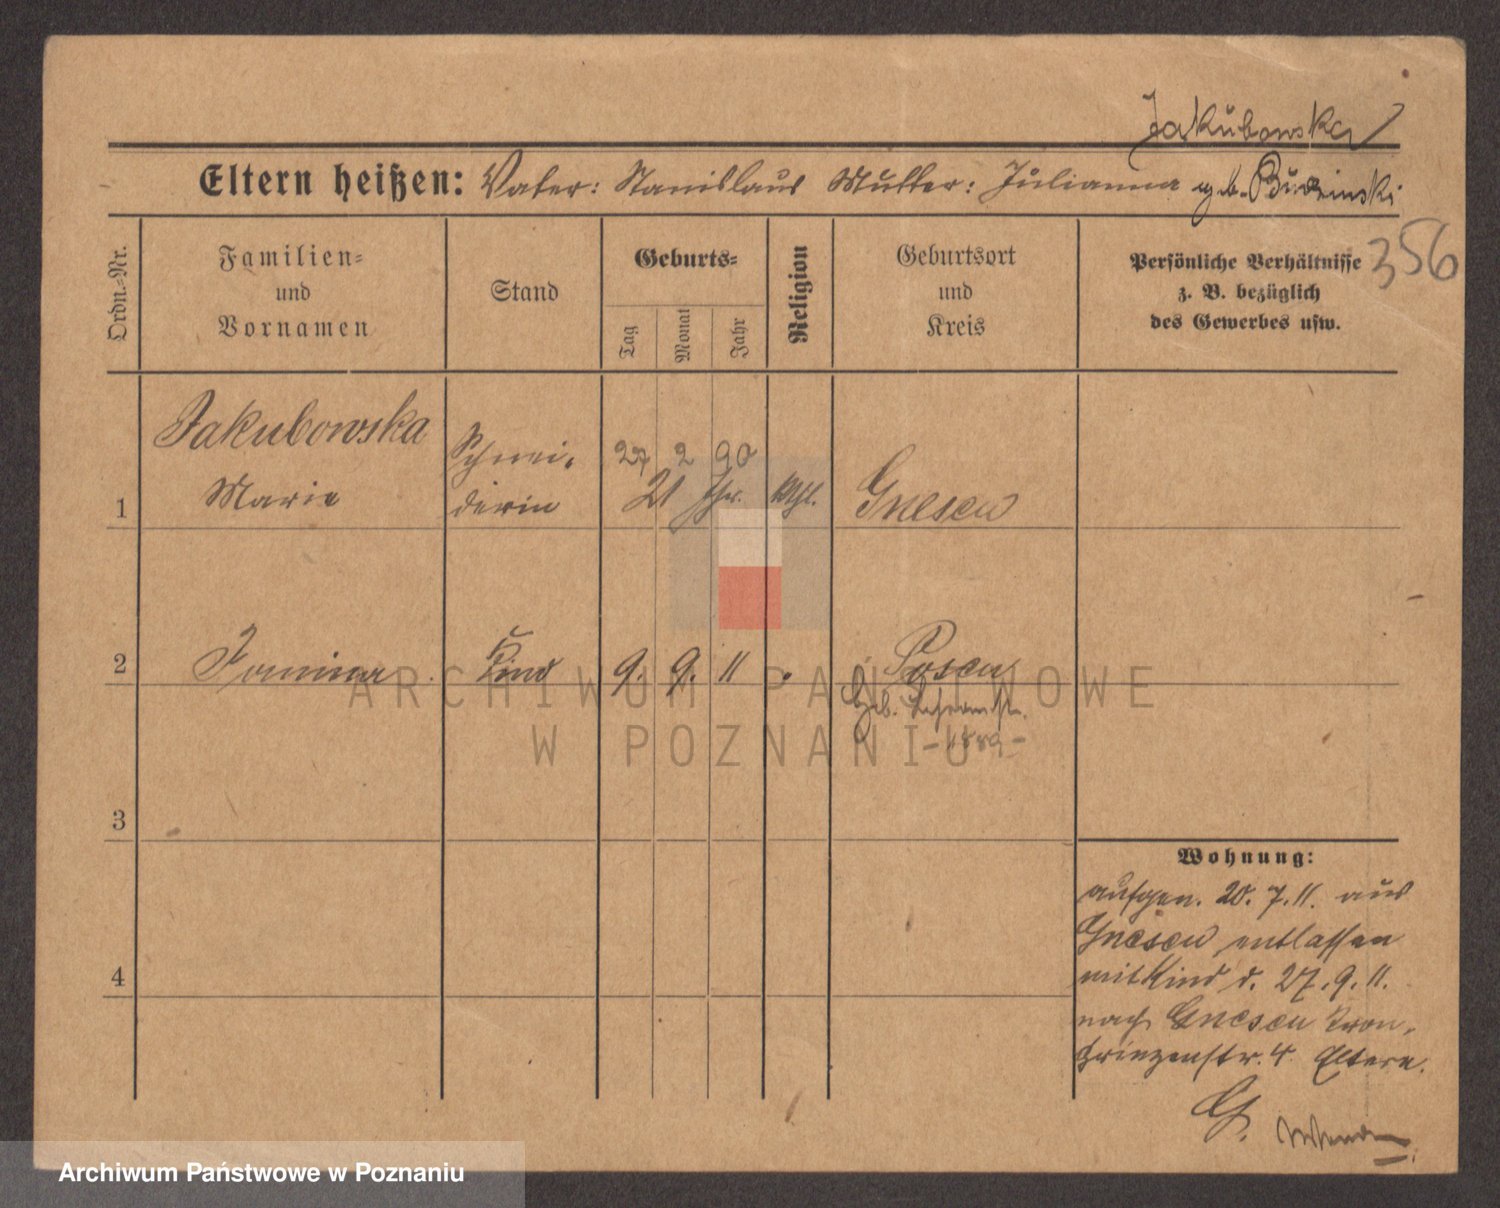 Jakubowska
Eltern heißen: Vater: Stanislaus Mutter: Julianna geb. Budzinski
356
Ordn.-Nr.
Familien-
und
Vornamen
Stand
Geburts-
Tag
Monat
Jahr
Religion
Geburtsort
und
Kreis
Persönliche Verhältnisse
z. B. bezüglich
des Gewerbes usw.
1
Jakubowska
Marie
Schnei-
derin
27 2 90
21 Jhr.
kthl.
Gnesen
2
Janina
Kind
9. 9. 11
Posen
Geb.
-1889-
3
4
Wohnung:
aufgen. 20.7.11. aus
Gnesen entlassen
mit Kind d. 27.9.11.
nach Gnesen Kron-
prinzenstr. 4. Eltern.
G.
ARCHIWUM PAŃSTWOWE
W POZNANIU
Archiwum Państwowe w Poznaniu